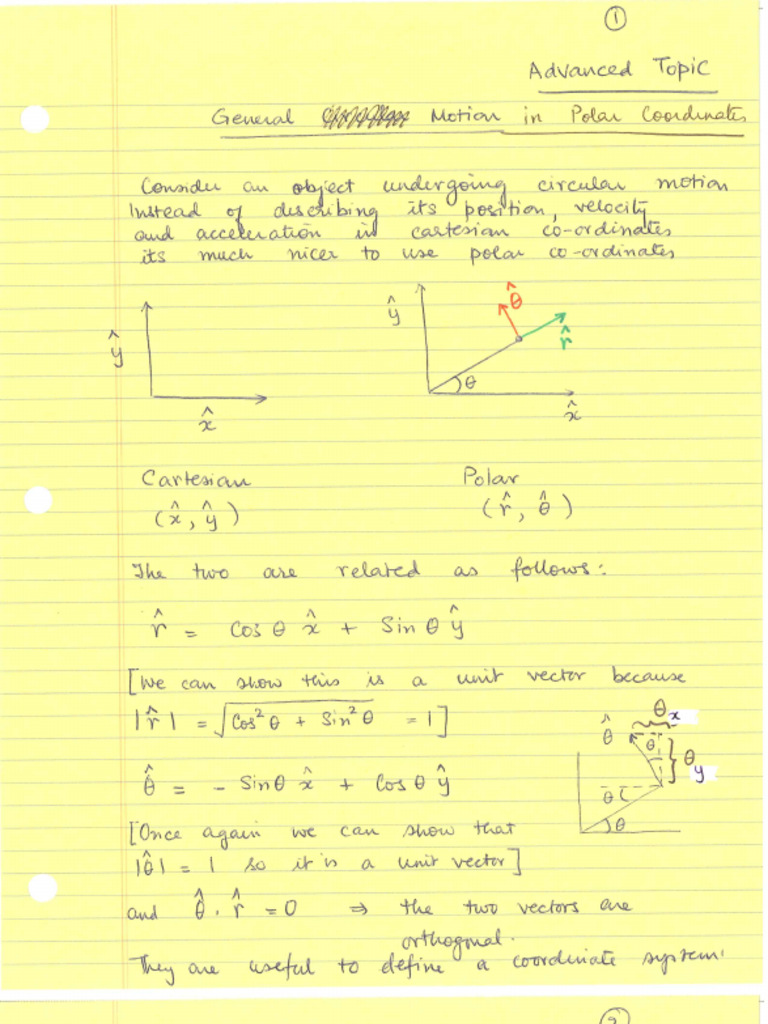 ①
Advanced Topic
General Motion in Polar Coordinates
Consider an object undergoing circular motion
Instead of describing its position, velocity
and acceleration in cartesian co-ordinates
its much nicer to use polar co-ordinates
ŷ
x̂
ŷ
θ̂
r̂
θ
x̂
Cartesian
Polar
(x̂, ŷ)
(r̂, θ̂)
The two are related as follows:
r̂ = Cos θ x̂ + Sin θ ŷ
[We can show this is a unit vector because
|r̂| = √(Cos²θ + Sin²θ) = 1]
θ̂ = - Sinθ x̂ + Cos θ ŷ
θ̂
θx
θ
θy
θ
θ
[Once again we can show that
|θ̂| = 1 so it is a unit vector]
and θ̂ . r̂ = 0 ⇒ the two vectors are
orthogonal.
They are useful to define a coordinate system.
②